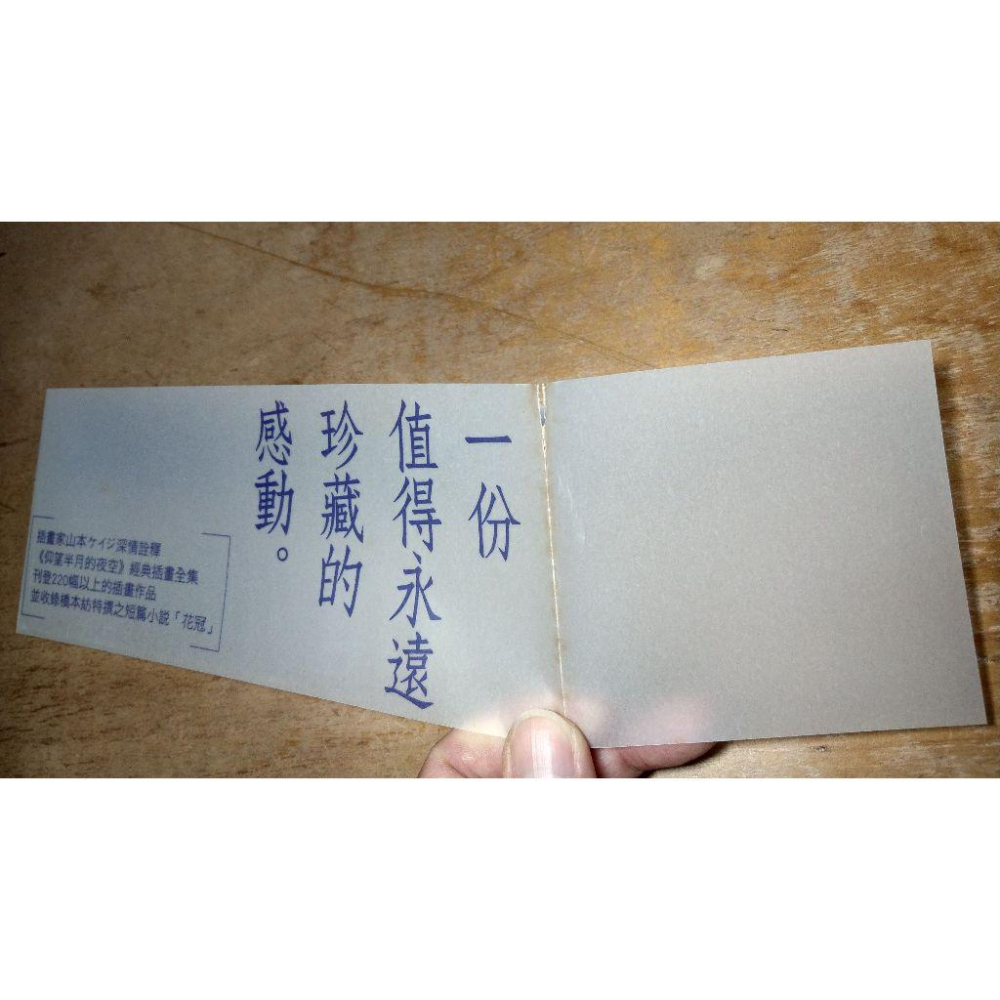 一份
值得永遠
珍藏的
感動。
插畫家山本ケイジ深情詮釋
《仰望半月的夜空》經典插畫全集
刊登220幅以上的插畫作品
並收錄橋本紡特撰之短篇小說「花冠」